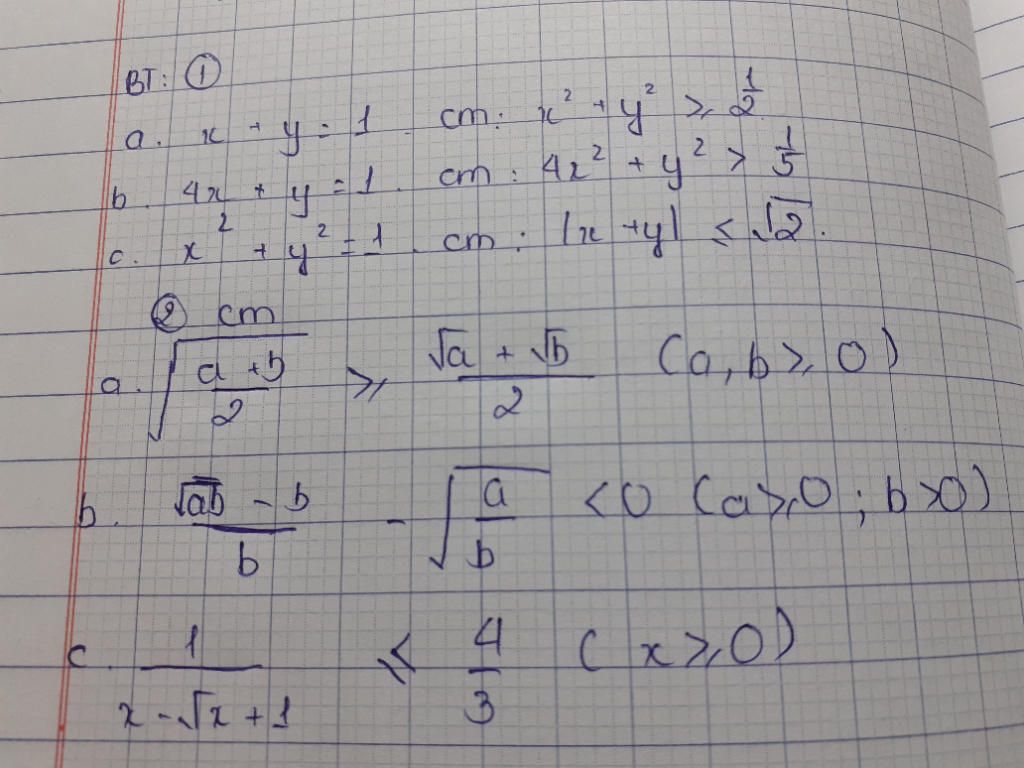 BT: ①
a. x + y = 1. cm: x² + y² ≥ 1/2
b. 4x + y = 1. cm: 4x² + y² > 1/5
c. x² + y² = 1. cm: |x + y| ≤ √2.
② cm
a. √((a + b)/2) ≥ (√a + √b)/2 (a, b ≥ 0)
b. (√(ab) - b)/b - √(a/b) < 0 (a ≥ 0; b > 0)
c. 1/(x - √x + 1) ≤ 4/3 (x ≥ 0)